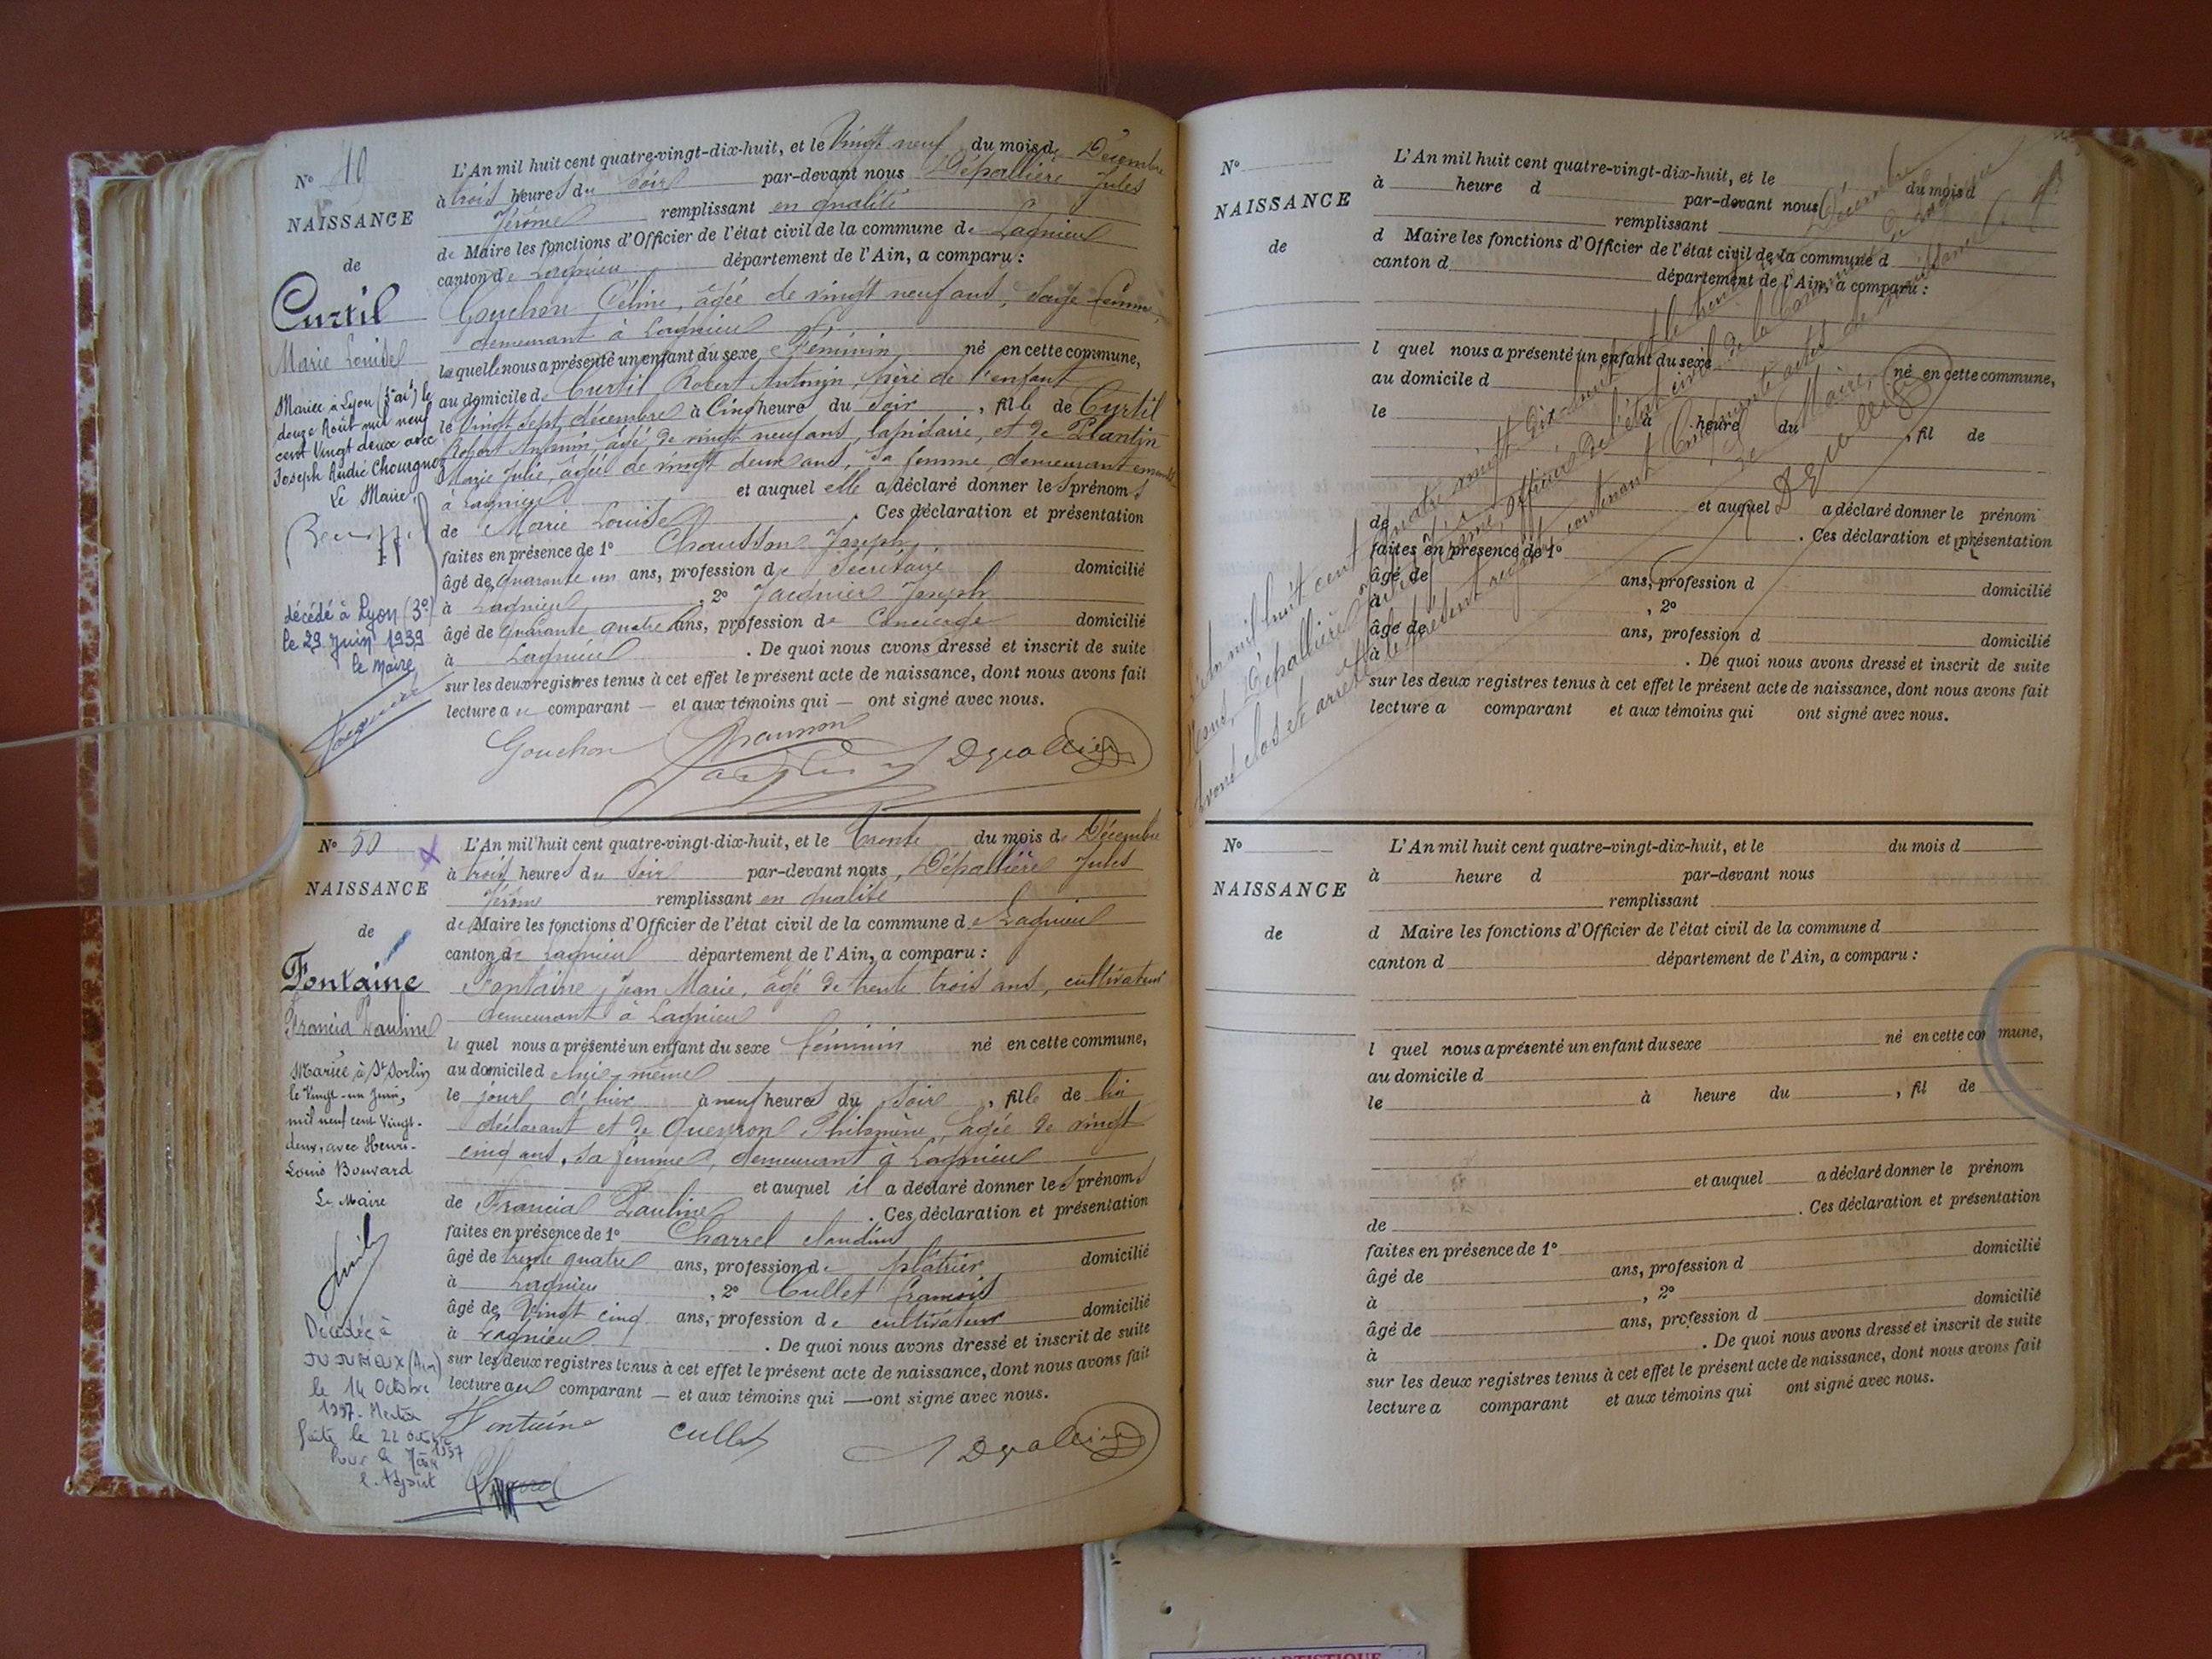 N° 49
NAISSANCE
de
Curtil
Marie Louise
Mariée à Lyon (5e ar) le
douze Août mil neuf
cent Vingt deux avec
Joseph André Chourgnoz
Le Maire
décédé à Lyon (3e)
le 29 Juin 1939
le maire
L'An mil huit cent quatre-vingt-dix-huit, et le Vingt neuf du mois de Décembre
à trois heures du soir par-devant nous Dépallière Jules
Jérôme remplissant en qualité
de Maire les fonctions d'Officier de l'état civil de la commune de Lagnieu
canton de Lagnieu département de l'Ain, a comparu :
Gouchon Céline, âgée de vingt neuf ans, sage femme,
demeurant à Lagnieu
laquelle nous a présenté un enfant du sexe féminin né en cette commune,
au domicile de Curtil Robert Antonin, père de l'enfant
le Vingt sept décembre à Cinq heures du soir, fille de Curtil
Robert Antonin, âgé de vingt neuf ans, lapidaire, et de Plantin
Marie Julie, âgée de vingt deux ans, sa femme, demeurant ensemble
à Lagnieu et auquel elle a déclaré donner les prénoms
de Marie Louise. Ces déclaration et présentation
faites en présence de 1° Chausson Joseph
âgé de quarante un ans, profession de Secrétaire domicilié
à Lagnieu, 2° Jacquier Joseph
âgé de quarante quatre ans, profession de Concierge domicilié
à Lagnieu. De quoi nous avons dressé et inscrit de suite
sur les deux registres tenus à cet effet le présent acte de naissance, dont nous avons fait
lecture a u comparant — et aux témoins qui — ont signé avec nous.
Gouchon Chausson Depallière
N° 50
NAISSANCE
de
Fontaine
Francia Pauline
Mariée à St Sorlin
le Vingt-un Juin,
mil neuf cent Vingt-
deux, avec Henri-
Louis Bouvard
Le Maire
Décédée à
JUJURIEUX (Ain)
le 14 Octobre
1997. Mention
faite le 22 octobre
1997
Pour le Maire
l'Adjoint
L'An mil huit cent quatre-vingt-dix-huit, et le Trente du mois de Décembre
à trois heures du soir par-devant nous, Dépallière Jules
Jérôme remplissant en qualité
de Maire les fonctions d'Officier de l'état civil de la commune de Lagnieu
canton de Lagnieu département de l'Ain, a comparu :
Fontaine Jean Marie, âgé de trente trois ans, cultivateur
demeurant à Lagnieu
lequel nous a présenté un enfant du sexe féminin né en cette commune,
au domicile de lui-même
le jour d'hier à neuf heures du soir, fille de lui
déclarant et de Queyron Philomène, âgée de vingt
cinq ans, sa femme, demeurant à Lagnieu
et auquel il a déclaré donner les prénoms
de Francia Pauline. Ces déclaration et présentation
faites en présence de 1° Charrel Claudius
âgé de trente quatre ans, profession de plâtrier domicilié
à Lagnieu, 2° Cullet François
âgé de Vingt cinq ans, profession de cultivateur domicilié
à Lagnieu. De quoi nous avons dressé et inscrit de suite
sur les deux registres tenus à cet effet le présent acte de naissance, dont nous avons fait
lecture au comparant — et aux témoins qui — ont signé avec nous.
Fontaine Cullet Depallière
Charrel
N°
NAISSANCE
de
L'An mil huit cent quatre-vingt-dix-huit, et le du mois d
à heure d par-devant nous
remplissant
d Maire les fonctions d'Officier de l'état civil de la commune d
canton d département de l'Ain, a comparu :
l quel nous a présenté un enfant du sexe né en cette commune,
au domicile d
le à heure du , fil de
et auquel a déclaré donner le prénom
de . Ces déclaration et présentation
faites en présence de 1°
âgé de ans, profession d domicilié
à , 2°
âgé de ans, profession d domicilié
à . De quoi nous avons dressé et inscrit de suite
sur les deux registres tenus à cet effet le présent acte de naissance, dont nous avons fait
lecture a comparant et aux témoins qui ont signé avec nous.
L'an mil huit cent quatre vingt dix huit et le trente Décembre
Nous, Dépallière Jules Jérôme, officier de l'état civil de la Commune de Lagnieu
avons clos et arrêté le présent registre contenant Cinquante actes de naissance
Le Maire,
Depallière
N°
NAISSANCE
de
L'An mil huit cent quatre-vingt-dix-huit, et le du mois d
à heure d par-devant nous
remplissant
d Maire les fonctions d'Officier de l'état civil de la commune d
canton d département de l'Ain, a comparu :
l quel nous a présenté un enfant du sexe né en cette commune,
au domicile d
le à heure du , fil de
et auquel a déclaré donner le prénom
de . Ces déclaration et présentation
faites en présence de 1°
âgé de ans, profession d domicilié
à , 2°
âgé de ans, profession d domicilié
à . De quoi nous avons dressé et inscrit de suite
sur les deux registres tenus à cet effet le présent acte de naissance, dont nous avons fait
lecture a comparant et aux témoins qui ont signé avec nous.
ARTISTIQUE